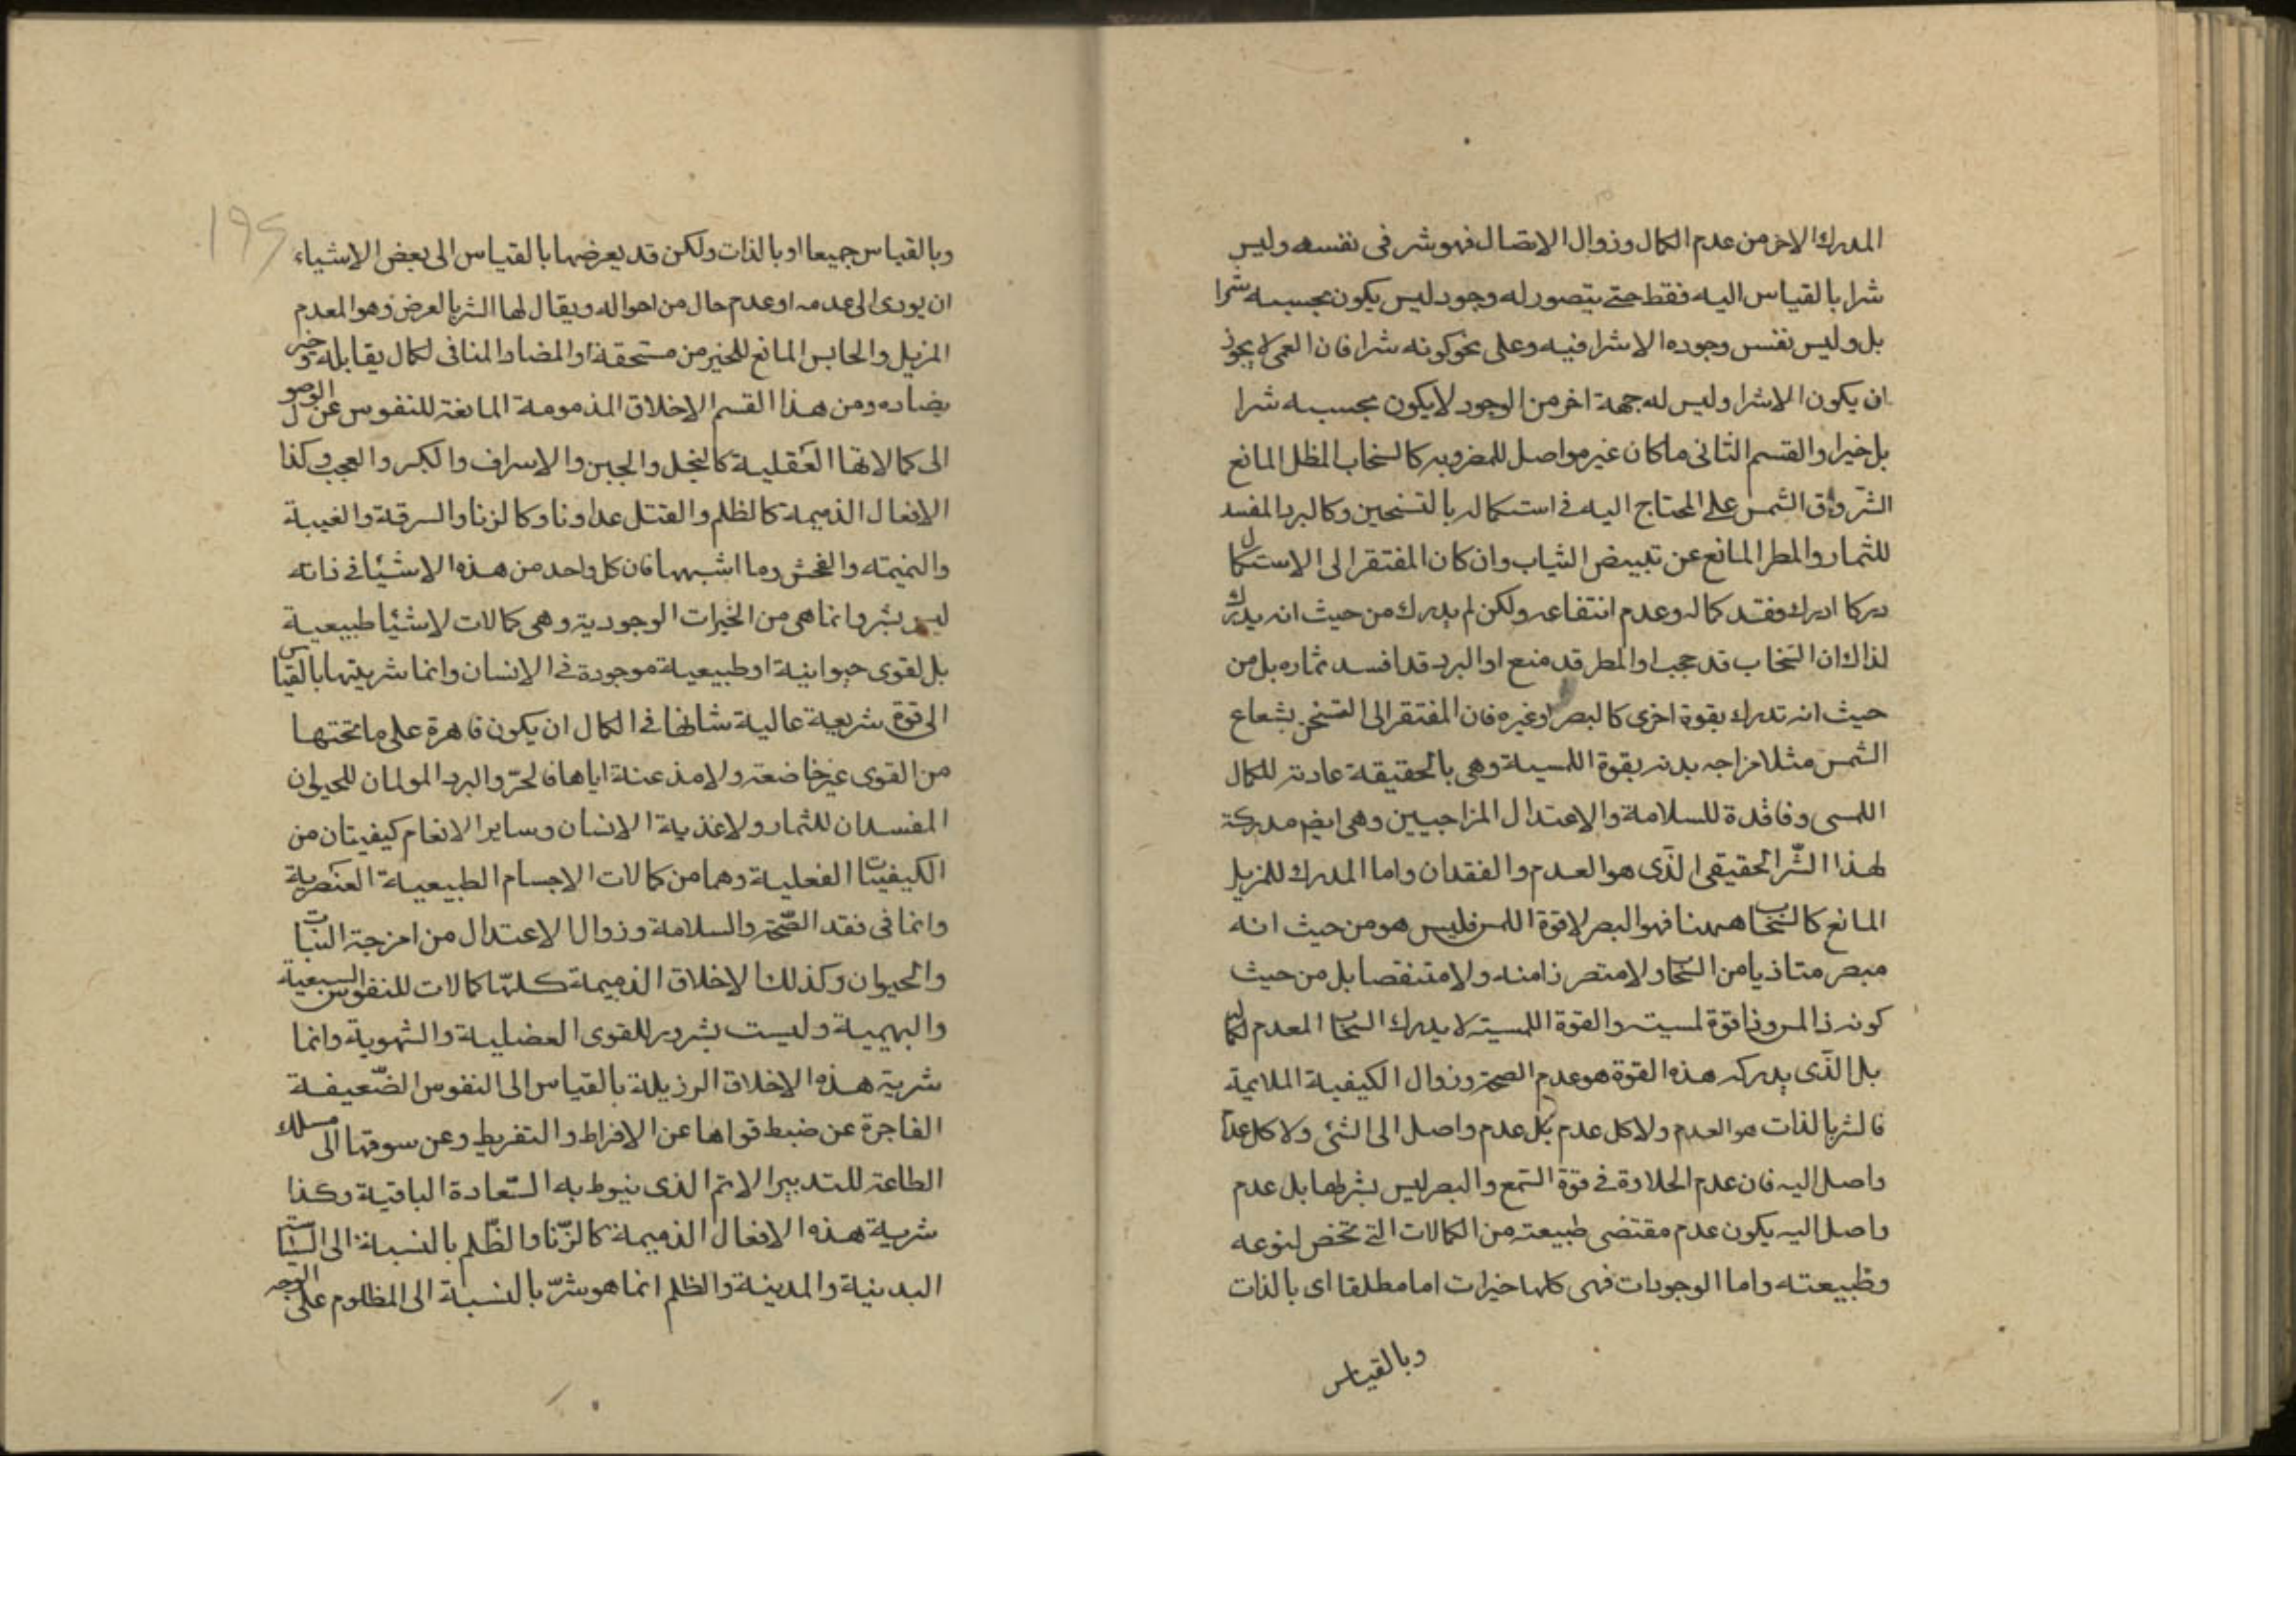 المدرك الاخر من عدم الكمال وزوال الاتصال فهو شر فى نفسه وليس
شرا بالقياس اليه فقط حتى يتصور له وجود ليس يكون بحسبه شرا
بل وليس نفس وجوده الا شرا فيه وعلى نحو كونه شرا فان العمى لا يجوز
ان يكون الا شرا وليس له جهة اخر من الوجود لا يكون بحسبه شرا
بل خيرا والقسم الثانى ما كان غير مواصل للمضرور به كالسحاب المظل المانع
الشروق الشمس على المحتاج اليه فى استكماله بالتسخين وكالبرد المفسد
للثمار والمطر المانع عن تبييض الثياب وان كان المفتقر الى الاستكمال
دركا ادرك فقد كماله وعدم انتفاعه ولكن لم يدرك من حيث انه يدرك
لذاك ان السحاب قد حجب او المطر قد منع او البرد قد افسد ثماره بل من
حيث انه تدرك بقوة اخرى كالبصر او غيره فان المفتقر الى التسخن بشعاع
الشمس مثلا مزاجه بدنه بقوة اللمسية وهى بالحقيقة عادته للكمال
اللمسى وفاقدة للسلامة والاعتدال المزاجيين وهى ايضم مدركة
لهذا الشر الحقيقى الذى هو العدم والفقدان واما المدرك للمزيل
المانع كالسحاب ههنا فهو البصر لا قوة اللمس فليس هو من حيث انه
مبصر متاذيا من السحاب ولا متضررا منه ولا متنقصا بل من حيث
كونه ذا لمس وذا قوة لمسيته والقوة اللمسية لا يدرك السحاب المعدم لكمالها
بل الذى يدركه هذه القوة هو عدم الصحة وزوال الكيفية الملايمة
فالشر بالذات هو العدم ولا كل عدم بل عدم واصل الى الشئ ولا كل عدم
واصل اليه فان عدم الحلاوة فى قوة السمع والبصر ليس بشر لها بل عدم
واصل اليه يكون عدم مقتضى طبيعته من الكمالات التى تخص لنوعه
وطبيعته واما الوجودات فهى كلها خيرات اما مطلقا اى بالذات
وبالقياس
١٩٤
وبالقياس جميعا او بالذات ولكن قد يعرضها بالقياس الى بعض الاشياء
ان يودى الى عدمه او عدم حال من احواله ويقال لها الشر بالعرض وهو المعدم
المزيل والحابس المانع للخير من مستحقة او المضاد المنافى لكمال يقابله وخير
يضاده ومن هذا القسم الاخلاق المذمومة المانغة للنفوس عن الوصول
الى كمالاتها العقلية كالبخل والجبن والاسراف والكبر والعجب وكذا
الافعال الذميمة كالظلم والقتل عداونا وكالزنا والسرقة والغيبة
والنميمته والفحش وما اشبهها فان كل واحد من هذه الاشيا فى ذاته
ليس بشر وانما هى من الخيرات الوجودية وهى كمالات لاشيا طبيعية
بل لقوى حيوانية او طبيعية موجودة فى الانسان وانما شريتها بالقياس
الى قوة شريعة عالية شانها فى الكمال ان يكون قاهرة على ما تحتها
من القوى غير خاضعة ولا مذعنة اياها فالحر والبرد المولمان للحيوان
المفسدان للثمار ولاغذية الانسان وساير الانعام كيفيتان من
الكيفيات الفعلية وهما من كمالات الاجسام الطبيعية العنصرية
وانما فى فقد الصحة والسلامة وزوال الاعتدال من امزجة النبات
والحيوان وكذلك الاخلاق الذميمة كلها كمالات للنفوس السبعية
والبهيمية وليست بشر دير للقوى العضلية والشهوية وانما
شرية هذه الاخلاق الرزيلة بالقياس الى النفوس الضعيفة
الفاجرة عن ضبط قواها عن الافراط والتفريط وعن سوقها الى مسلك
الطاعة للتدبير الاتم الذى ينوط به السعادة الباقية وكذا
شرية هذه الافعال الذميمة كالزنا والظلم بالنسبة الى السياسة
البدينية والمدينة والظلم انما هو شر بالنسبة الى المظلوم على الوجه